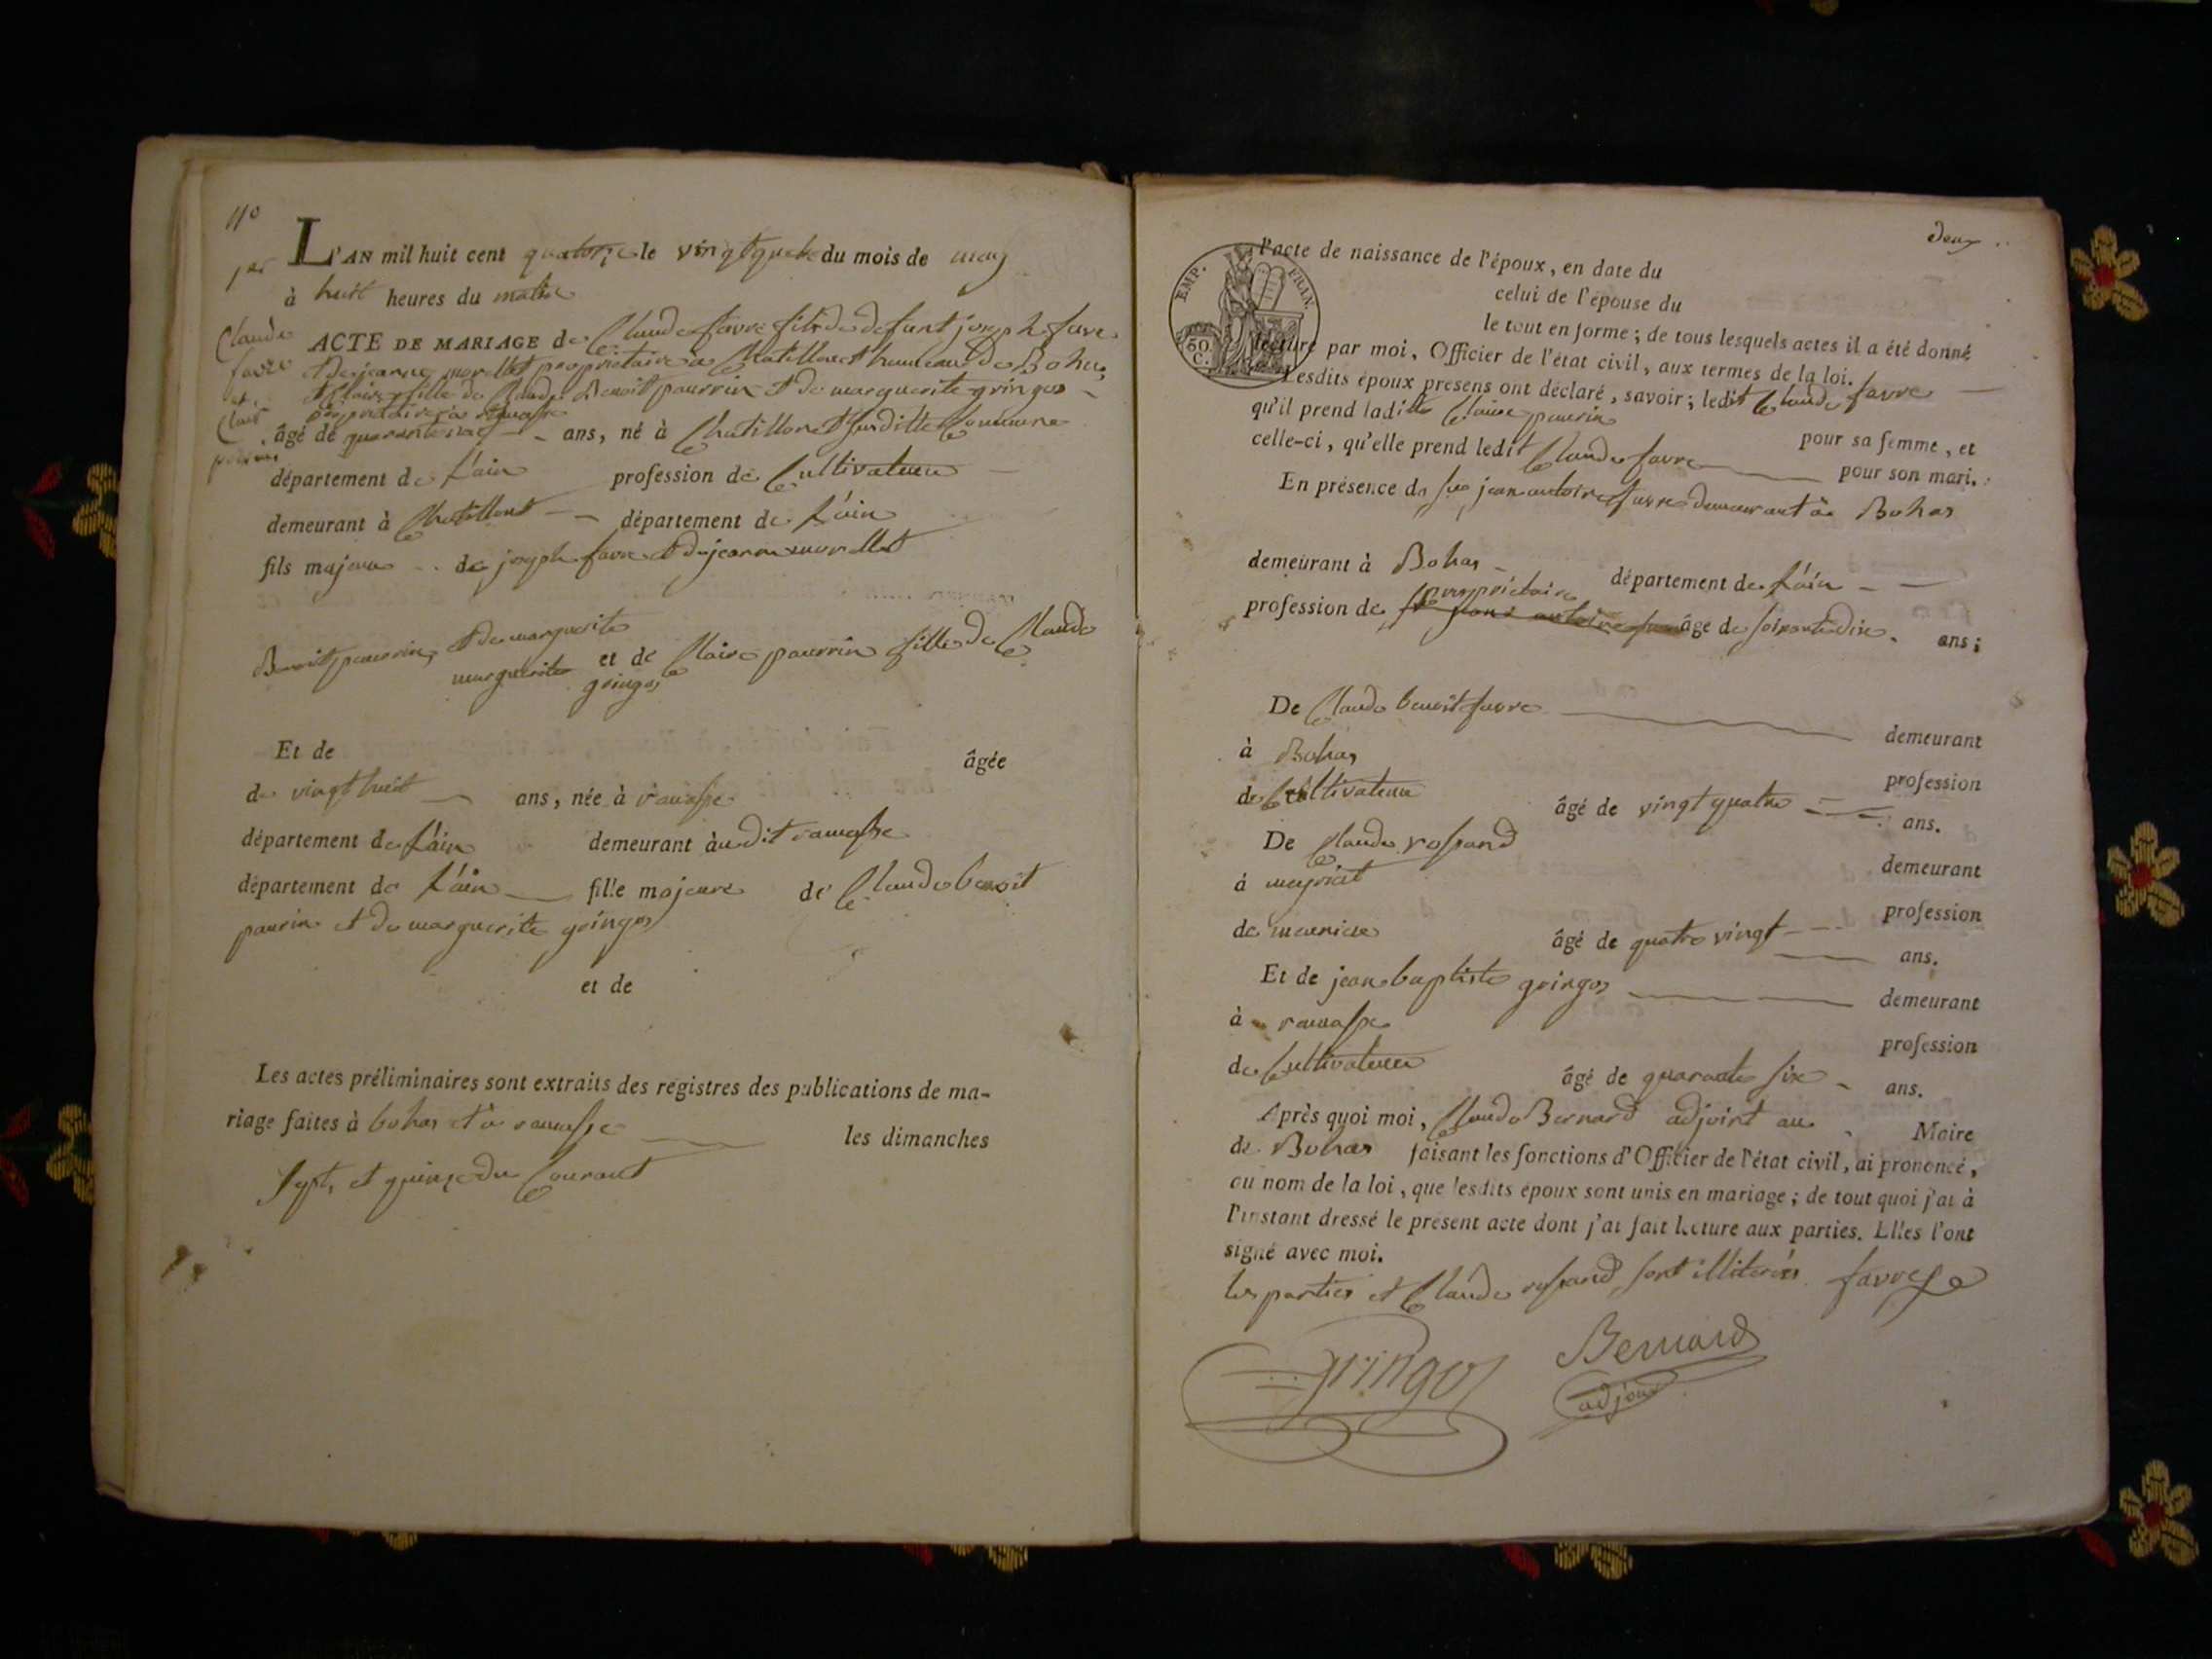 110
1er
L'AN mil huit cent quatorze le vingt quatre du mois de may
à huit heures du matin
Claude
favre
et
Claire
paurin
ACTE DE MARIAGE de Claude favre fils de defunt joseph favre
et de jeanne morellet propriétaire à Chatillonet hameau de Bohas
et Claire fille de Claude Benoit paurrin et de marguerite gringos
propriétaire à ramasse
âgé de quarante ans, né à Chatillonet susditte Commune
département de L'ain profession de Cultivateur
demeurant à Chatillonet département de L'ain
fils majeur de joseph favre et de jeanne morellet
Benoit paurrin, et de marguerite
marguerite et de Claire paurrin fille de Claude
gringos
Et de âgée
de vingt huit ans, née à ramasse
département de L'ain demeurant audit ramasse
département de L'ain fille majeure de Claude benoit
paurin et de marguerite gringos
et de
Les actes préliminaires sont extraits des registres des publications de ma-
riage faites à bohas et à ramasse les dimanches
sept, et quinze du Courant
deux
EMP. FRAN.
50 C.
l'acte de naissance de l'époux, en date du
celui de l'épouse du
le tout en forme; de tous lesquels actes il a été donné
lecture par moi, Officier de l'état civil, aux termes de la loi.
Lesdits époux présens ont déclaré, savoir; ledit Claude favre
qu'il prend ladite Claire paurin pour sa femme, et
celle-ci, qu'elle prend ledit Claude favre pour son mari.
En présence de jean antoine favre demeurant à Bohas
demeurant à Bohas département de L'ain
propriétaire
profession de âgé de soixante dix ans;
De Claude benoit favre demeurant
à Bohas profession
de Cultivateur âgé de vingt quatre ans.
De Claude rossand demeurant
à meyriat profession
de meunier âgé de quatre vingt ans.
Et de jean baptiste gringos demeurant
à ramasse profession
de Cultivateur âgé de quarante six ans.
Après quoi moi, Claude Bernard adjoint au Maire
de Bohas faisant les fonctions d'Officier de l'état civil, ai prononcé,
au nom de la loi, que lesdits époux sont unis en mariage; de tout quoi j'ai à
l'instant dressé le présent acte dont j'ai fait lecture aux parties. Elles l'ont
signé avec moi.
les parties et Claude rossand sont illiterés favre
gringos Bernard
adjoint